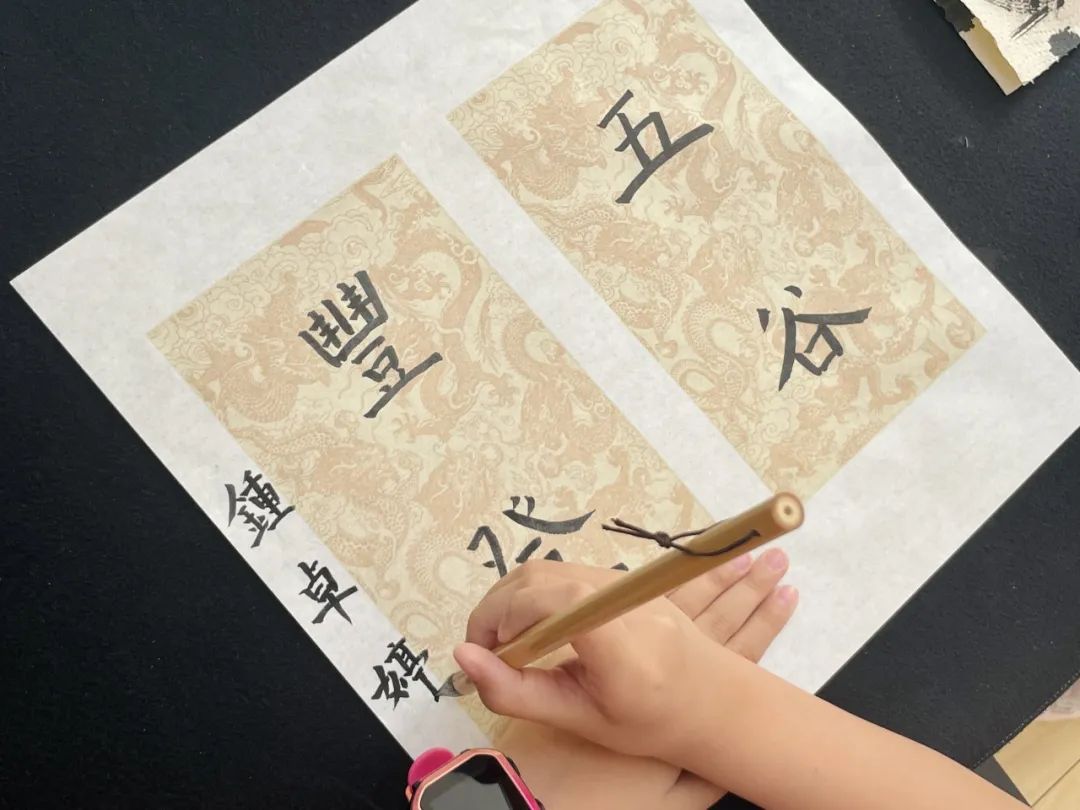 五谷
豐登
鍾卓婷